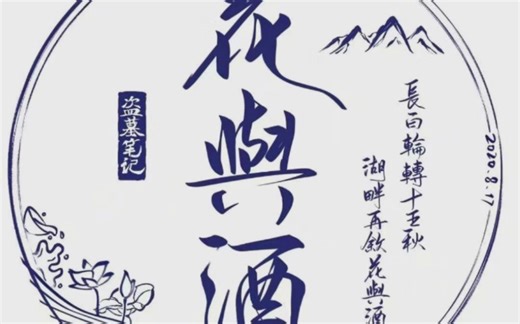 花與酒
盗墓笔记
長白輪轉十五秋
湖畔再敘花與酒
2020.8.17